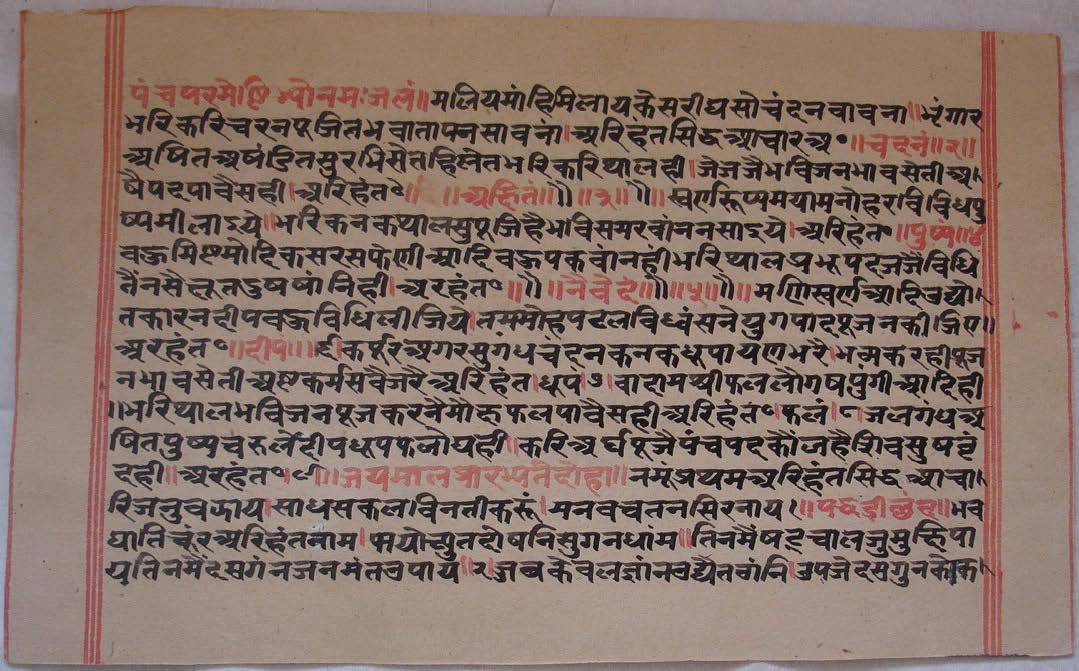 पंचपरमेष्ठिभ्योनमःजलं॥मलियमांहिमिलायकेसरीघसोचंदनबावना॥भृंगार
भरिकरिचरनपूजितभवातापनसावनां।अरिहंतसिद्धआचारअ॰॥चंदनं॥२॥
अषितअषंडितसुरभिसेतहिलेतभरिकरिथालही।जेजजैभविजनभावसेती
षैपदपावैसही।अरिहंत॰॥॥अछितं॥॥३॥॥स्वर्णरूप्यमयामनोहरविविधपु
ष्पमीलाइये॥भरिकनकथालसुपूजिहैभविसमरवांननसाइये।अरिहंत॰॥पुष्पं॥४
बहुमिष्टमोदिकसरसफेणीआदिबहुपकवांनही।भरिथालप्रभूपदजजैविधि
तैंनसैलूतदुषषांनिही।अरहंत॰॥॥नैवेदं॥॥५॥॥मणिस्वर्णआदिउद्यो
तकारनदीपबहुविधिलीजिये।तममोहपटलविध्वंसनेयुगपादपूजनकीजिए॥
अरहंत॰॥दीपं॥६कर्पूरअगरसुगंधचंदनकनकधूपायणभरै।भस्मकरहीपूज
नभावसेतीअष्टकर्मसबैजरै।अरिहंत।धूपं७बादामश्रीफललौंगषपुंगीआदिही
॥भरिथालभविजनपूजकरवैमोक्षफलपावैसही।अरिहंत॰फलं।८जलगंधअ
षितपुष्पचरुलेदीपधूपफलोघही।करिअर्घपूजेपंचपदकोंजहैशिवसुषवृं
दही॥अरहंत॰।९॥जयमालप्रारभ्यतेदोहा॥नमूंप्रथमअरिहंतसिद्धआचा
रिजनुवझाय।साधसकलविनतीकरूं।मनवचतनसिरनाय।॥पद्धडीछंद॥भव
घातिचूरअरिहंतनाम।पायोच्युतदोषनिसुगनधांम॥तिनमेंषटचालजुमुछिपा
यतिनमेंदसगंनजनमंतउपाय॥२जबकेवलज्ञांनउद्येतवांनि।उपजेदसगुनको